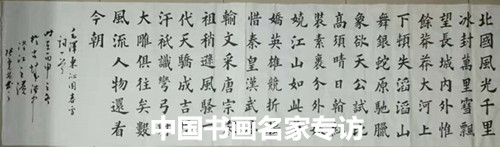 北國風光千里
冰封萬里雪飄
望長城内外惟
餘莽莽大河上
下頓失滔滔山
舞銀蛇原馳臘
象欲天公試比
高須晴日看
裝素裹分外
嬈江山如此
嬌英雄競折
惜秦皇漢武
輸文采唐宗
祖稍遜風騷
代天驕成吉
汗祇識彎弓
大雕俱往矣數
風流人物還看
今朝
毛澤東沁園春雪
詞一首
中国书画名家专访